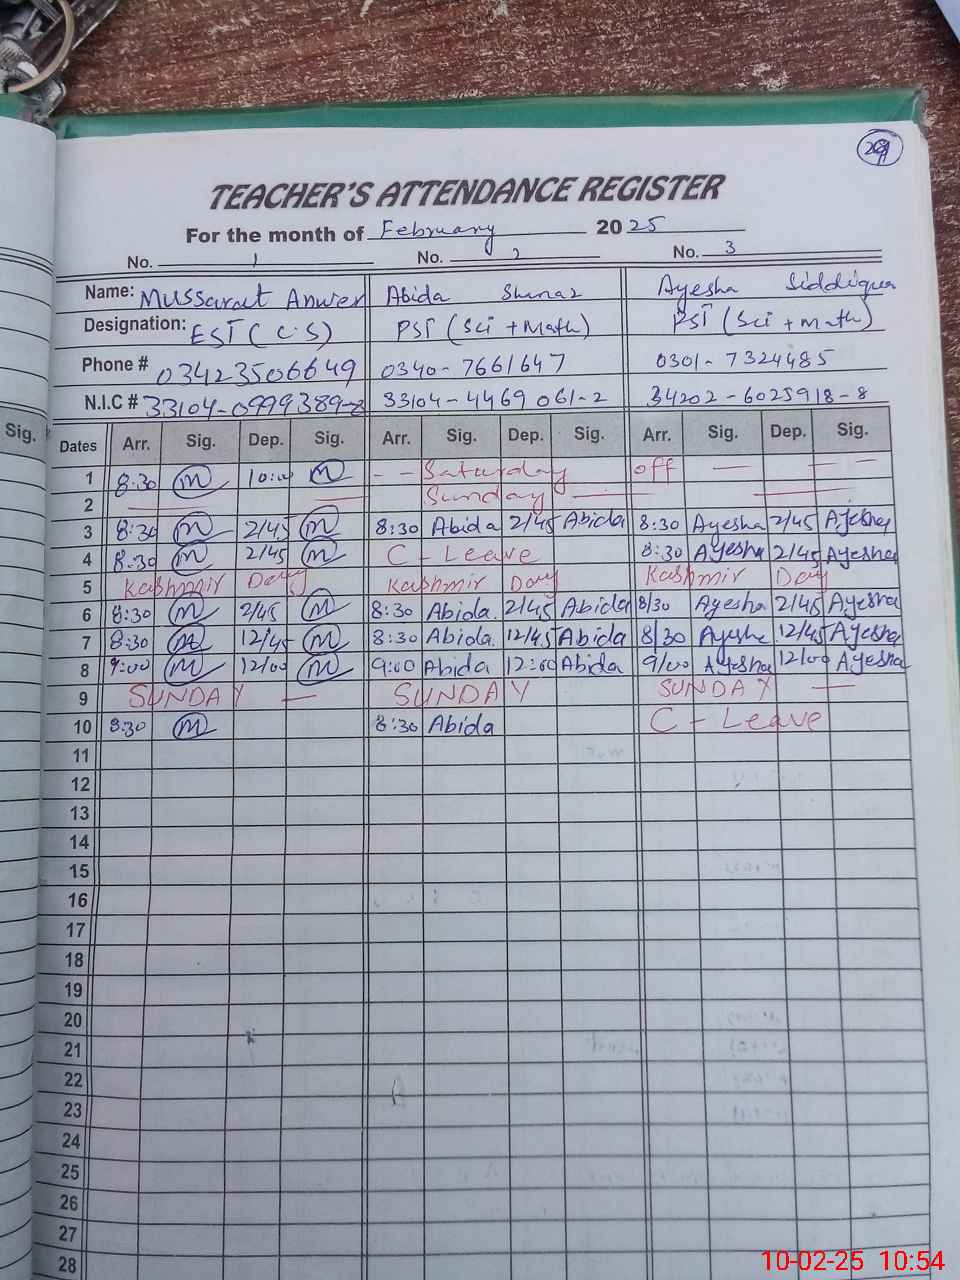 TEACHER'S ATTENDANCE REGISTER
For the month of February 2025
No. 1 No. 2 No. 3
Name: Mussarat Anwer Abida Shnaz Ayesha Siddiqua
Designation: EST (C.S) PST (Sci + Math) PST (Sci + math)
Phone # 03423506649 0340-7661647 0301-7324485
N.I.C # 33104-0999389-8 33104-4469061-2 34202-6025918-8
Sig. Dates Arr. Sig. Dep. Sig. Arr. Sig. Dep. Sig. Arr. Sig. Dep. Sig.
1 8:30 m 10:00 m - - Saturday off — — -
2 — — Sunday — — —
3 8:30 m 2/45 m 8:30 Abida 2/45 Abida 8:30 Ayesha 2/45 Ayesha
4 8:30 m 2/45 m C - Leave 8:30 Ayesha 2/45 Ayesha
5 Kashmir Day Kashmir Day Kashmir Day
6 8:30 m 2/45 m 8:30 Abida. 2/45 Abida 8/30 Ayesha 2/45 Ayesha
7 8:30 m 12/45 m 8:30 Abida. 12/45 Abida 8/30 Ayesha 12/45 Ayesha
8 9:00 m 12/00 m 9:00 Abida 12:00 Abida 9/00 Ayesha 12/00 Ayesha
9 SUNDAY — SUNDAY SUNDAY —
10 8:30 m 8:30 Abida C - Leave
11
12
13
14
15
16
17
18
19
20
21
22
23
24
25
26
27
28
10-02-25 10:54